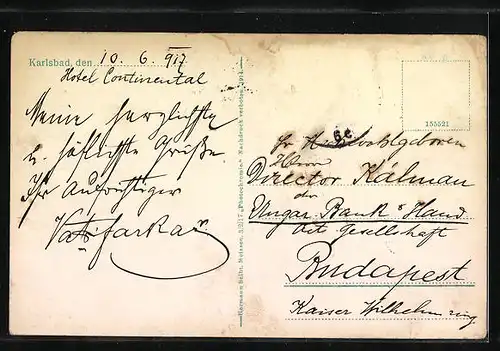 Karlsbad, den 10. 6. 917
Hotel Continental
Meine herzlichste
u. höflichste Grüße
Ihr Aufrichtiger
Farkas
Hermann Seibt, Meissen, 3217 „Photochromie“ Nachdruck verboten
155521
Sr. Hochwohlgeboren
Herrn
Director Kálmán
der
Ungar. Bank & Hand.
Act Gesellschaft
Budapest
Kaiser Wilhelm ring